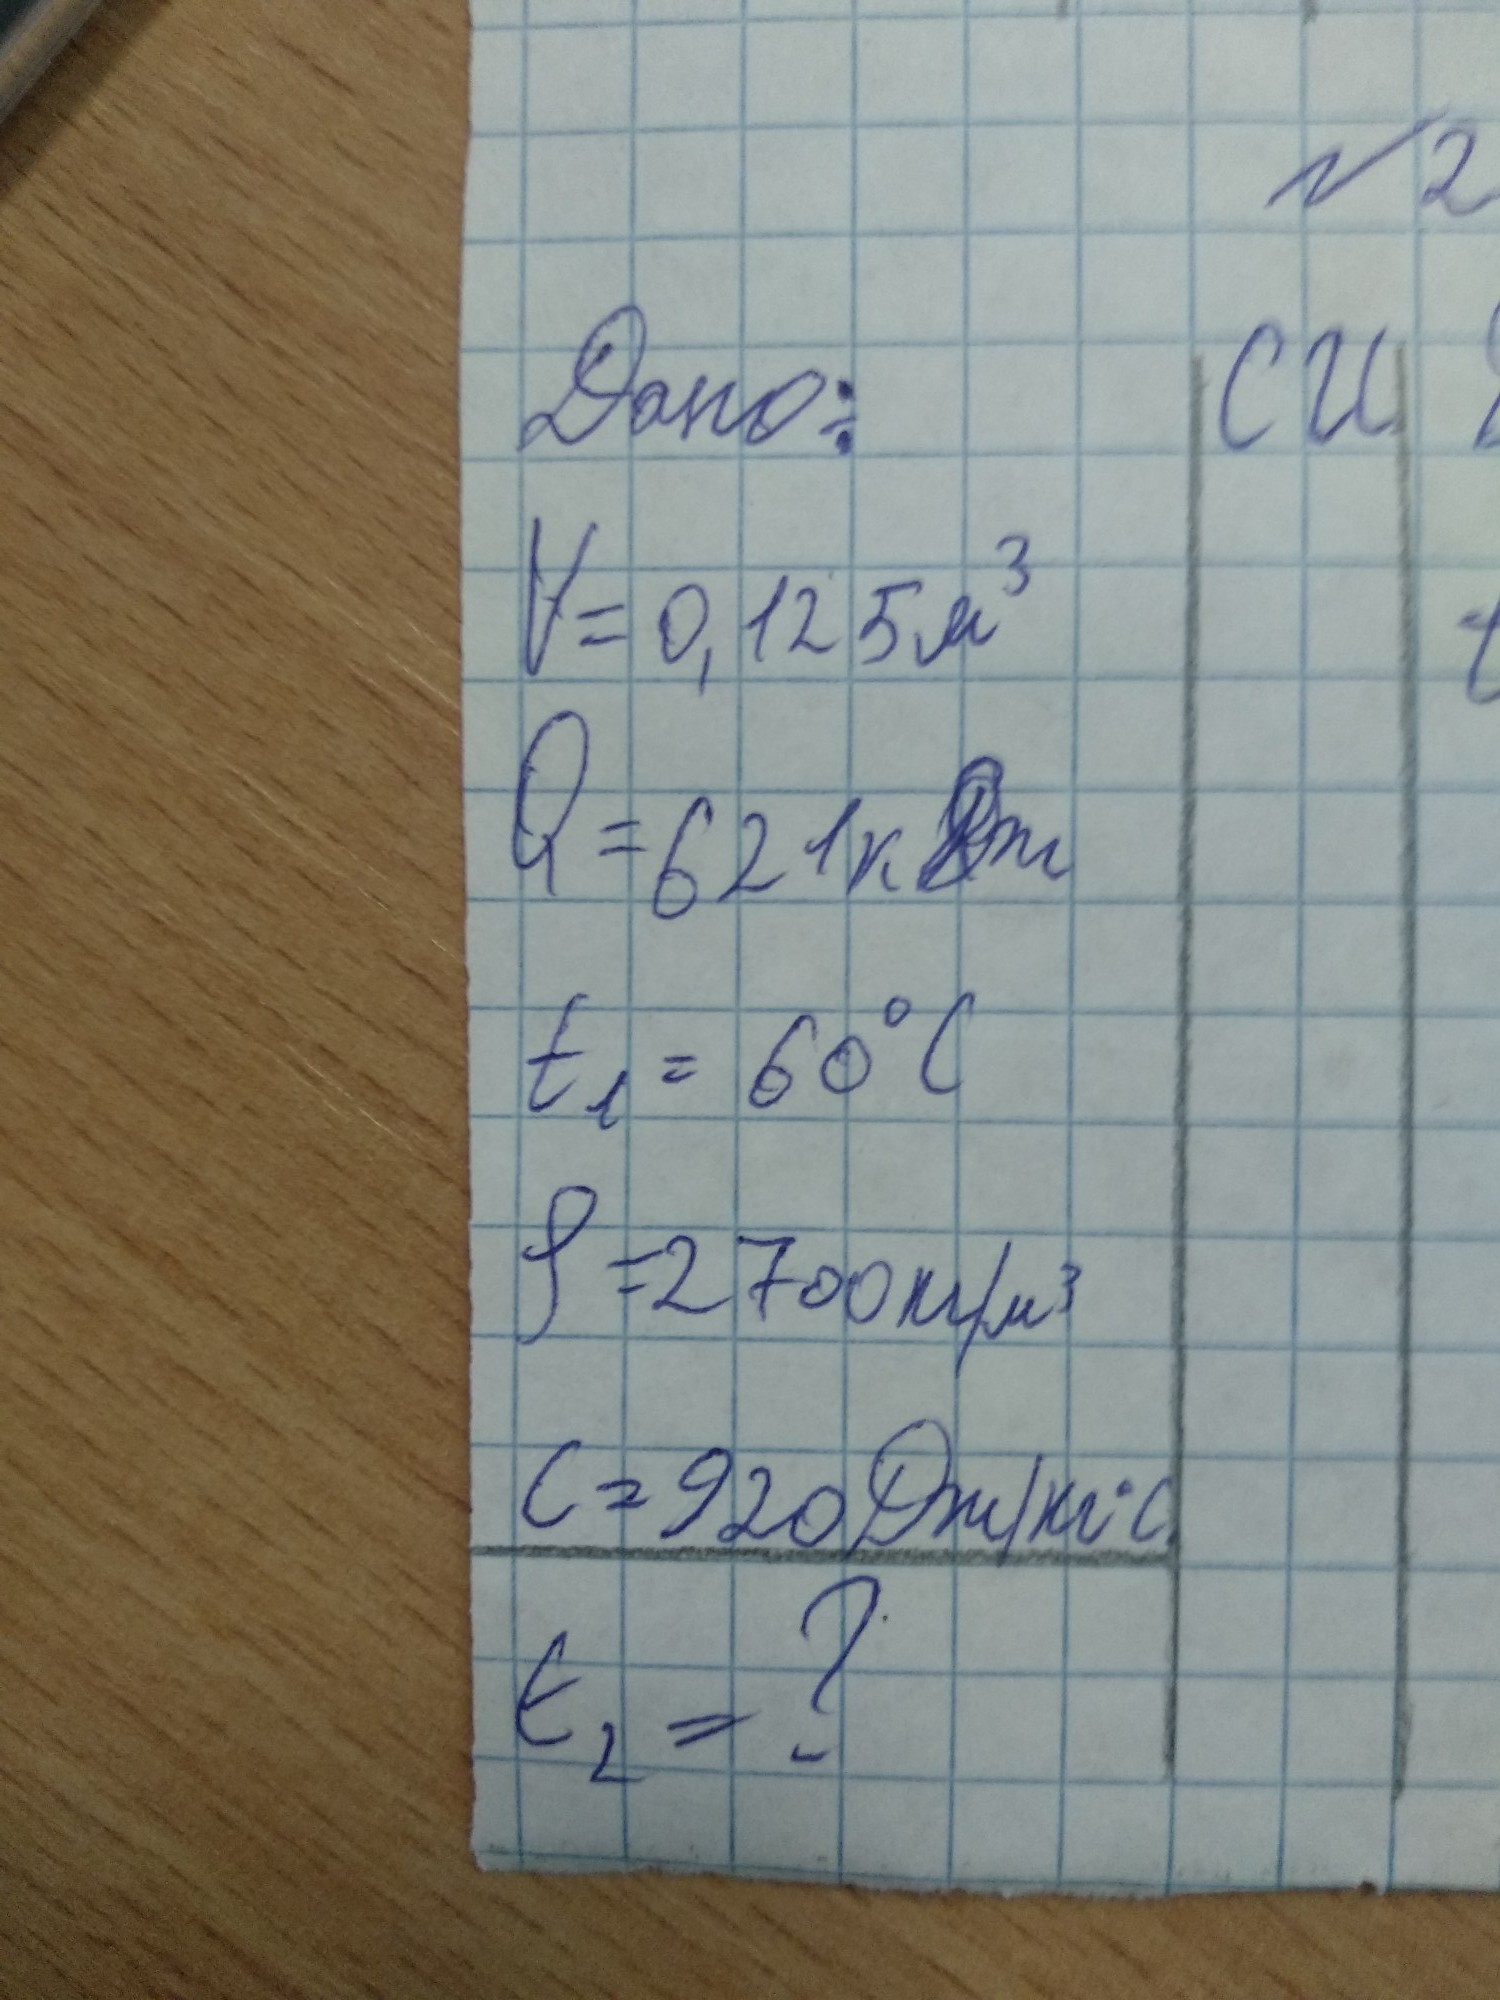 №2
Дано:
СИ
V=0,125м³
t
Q=621кДж
t₁=60°C
ρ=2700кг/м³
C=920Дж/кг°C
t₂=?